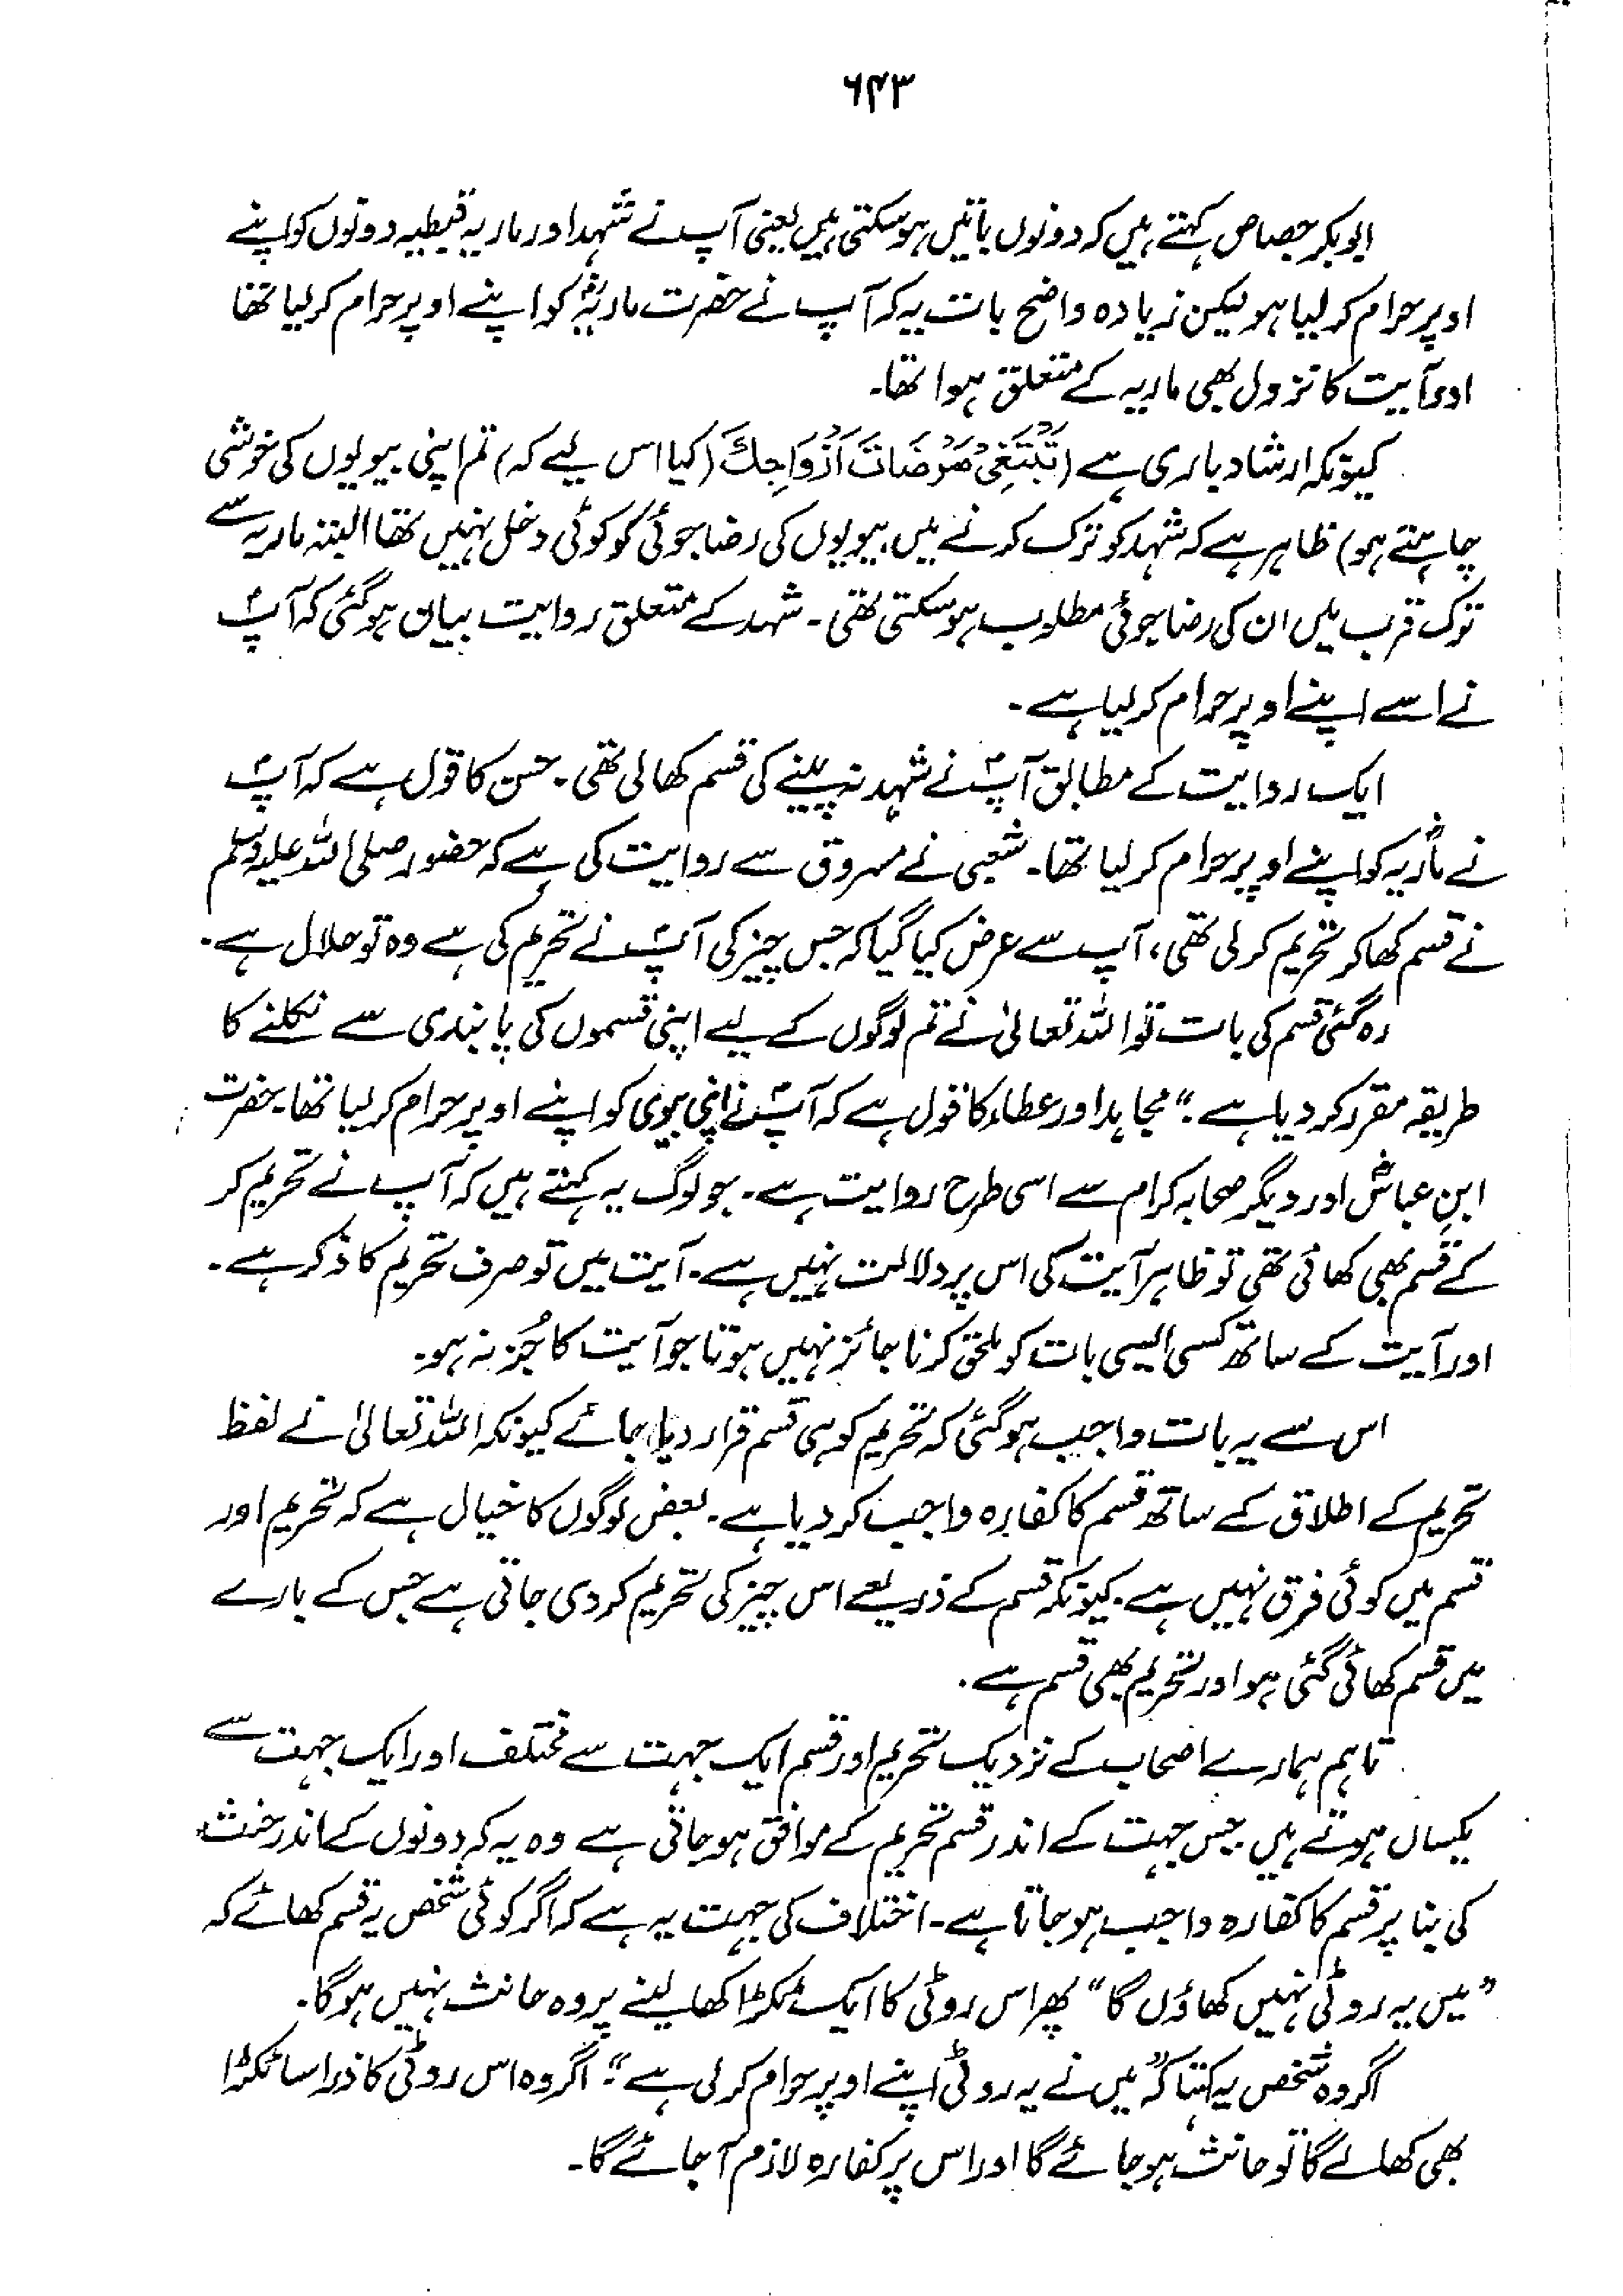 ۶۴۳
ابوبکر جصاص کہتے ہیں کہ دونوں باتیں ہوسکتی ہیں یعنی آپؐ نے شہد اور ماریہ قبطیہ دونوں کو اپنے
اوپر حرام کرلیا ہو لیکن زیادہ واضح بات یہ کہ آپ نے حضرت ماریہؓ کو اپنے اوپر حرام کرلیا تھا
اور آیت کا نزول بھی ماریہ کے متعلق ہوا تھا۔
کیونکہ ارشاد باری ہے (تَبْتَغِیْ مَرْضَاتَ اَزْوَاجِكَ (کیا اس لیے کہ) تم اپنی بیویوں کی خوشی
چاہتے ہو) ظاہر ہے کہ شہد کو ترک کرنے میں بیویوں کی رضا جوئی کو کوئی دخل نہیں تھا البتہ ماریہ سے
ترک قرب میں ان کی رضا جوئی مطلوب ہوسکتی تھی۔ شہد کے متعلق روایت بیان ہوگئی کہ آپؐ
نے اسے اپنے اوپر حرام کرلیا ہے۔
ایک روایت کے مطابق آپؐ نے شہد نہ پینے کی قسم کھالی تھی۔ حسن کا قول ہے کہ آپؐ
نے ماریہؓ کو اپنے اوپر حرام کرلیا تھا۔ شعبی نے مسروق سے روایت کی ہے کہ حضور صلی اللہ علیہ وسلم
نے قسم کھاکر تحریم کرلی تھی، آپ سے عرض کیا گیا کہ جس چیز کی آپؐ نے تحریم کی ہے وہ تو حلال ہے۔
رہ گئی قسم کی بات تو اللہ تعالیٰ نے تم لوگوں کے لیے اپنی قسموں کی پابندی سے نکلنے کا
طریقہ مقرر کردیا ہے۔“ مجاہد اور عطاء کا قول ہے کہ آپؐ نے اپنی بیوی کو اپنے اوپر حرام کرلیا تھا۔ حضرت
ابن عباسؓ اور دیگر صحابہ کرام سے اسی طرح روایت ہے۔ جو لوگ یہ کہتے ہیں کہ آپ نے تحریم کر
کے قسم بھی کھائی تھی تو ظاہر آیت کی اس پر دلالت نہیں ہے۔ آیت میں تو صرف تحریم کا ذکر ہے۔
اور آیت کے ساتھ کسی ایسی بات کو ملحق کرنا جائز نہیں ہوتا جو آیت کا جُز نہ ہو۔
اس سے یہ بات واجب ہوگئی کہ تحریم کو ہی قسم قرار دیا جائے کیونکہ اللہ تعالیٰ نے لفظ
تحریم کے اطلاق کے ساتھ قسم کا کفارہ واجب کردیا ہے۔ بعض لوگوں کا خیال ہے کہ تحریم اور
قسم میں کوئی فرق نہیں ہے۔ کیونکہ قسم کے ذریعے اس چیز کی تحریم کردی جاتی ہے جس کے بارے
میں قسم کھائی گئی ہو اور تحریم بھی قسم ہے۔
تاہم ہمارے اصحاب کے نزدیک تحریم اور قسم ایک جہت سے مختلف اور ایک جہت سے
یکساں ہوتے ہیں۔ جس جہت کے اندر قسم تحریم کے موافق ہوجاتی ہے وہ یہ کہ دونوں کے اندر حنث
کی بنا پر قسم کا کفارہ واجب ہوجاتا ہے۔ اختلاف کی جہت یہ ہے کہ اگر کوئی شخص یہ قسم کھائے کہ
”میں یہ روٹی نہیں کھاؤں گا“ پھر اس روٹی کا ایک ٹکڑا کھالینے پر وہ حانث نہیں ہوگا۔
اگر وہ شخص یہ کہتا کہ ”میں نے یہ روٹی اپنے اوپر حرام کرلی ہے۔“ اگر وہ اس روٹی کا ذرا سا ٹکڑا
بھی کھالے گا تو حانث ہوجائے گا اور اس پر کفارہ لازم آجائے گا۔